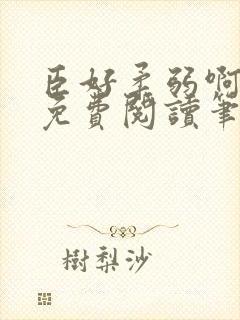 臣好柔弱啊
免費閱讀筆
樹梨沙